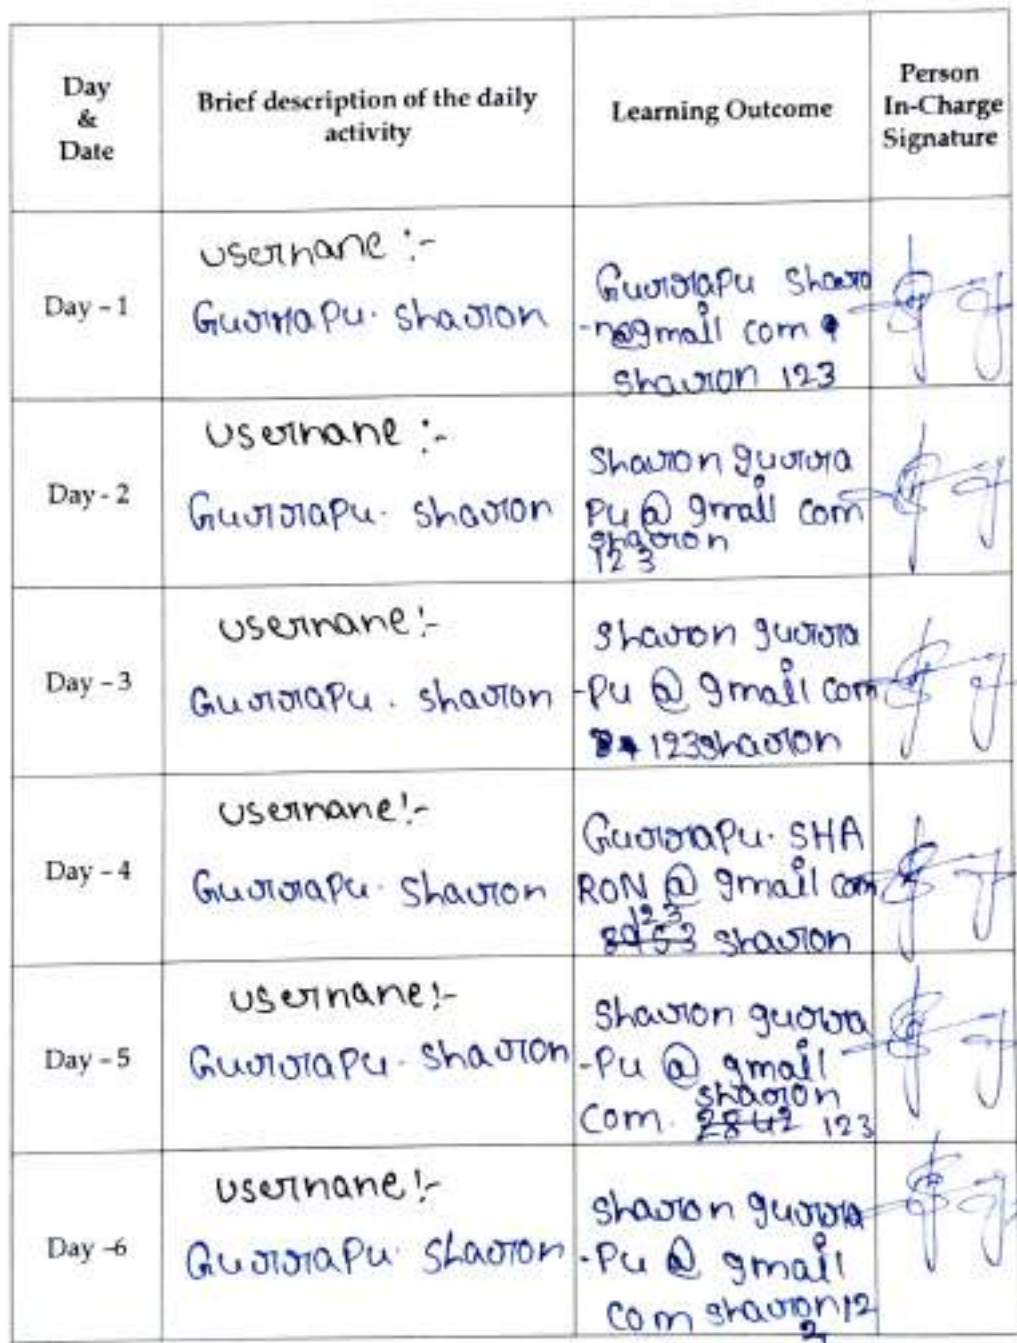 Day
&
Date
Brief description of the daily
activity
Learning Outcome
Person
In-Charge
Signature
Day – 1
usernane :-
Gurrapu. sharon
Gurrapu sharo
-n@gmail com
sharon 123
Day - 2
usernane :-
Gurrapu. sharon
sharon gurra
Pu @ gmail com
sharon
123
Day – 3
usernane:-
Gurrapu. sharon
sharon gurra
-Pu @ gmail com
123sharon
Day – 4
usernane:-
Gurrapu. sharon
Gurrapu. SHA
RON @ gmail com
123
sharon
Day – 5
usernane:-
Gurrapu. sharon
sharon gurra
-Pu @ gmail
sharon
com. 2842 123
Day –6
usernane:-
Gurrapu. sharon
sharon gurra
-Pu @ gmail
com sharon12